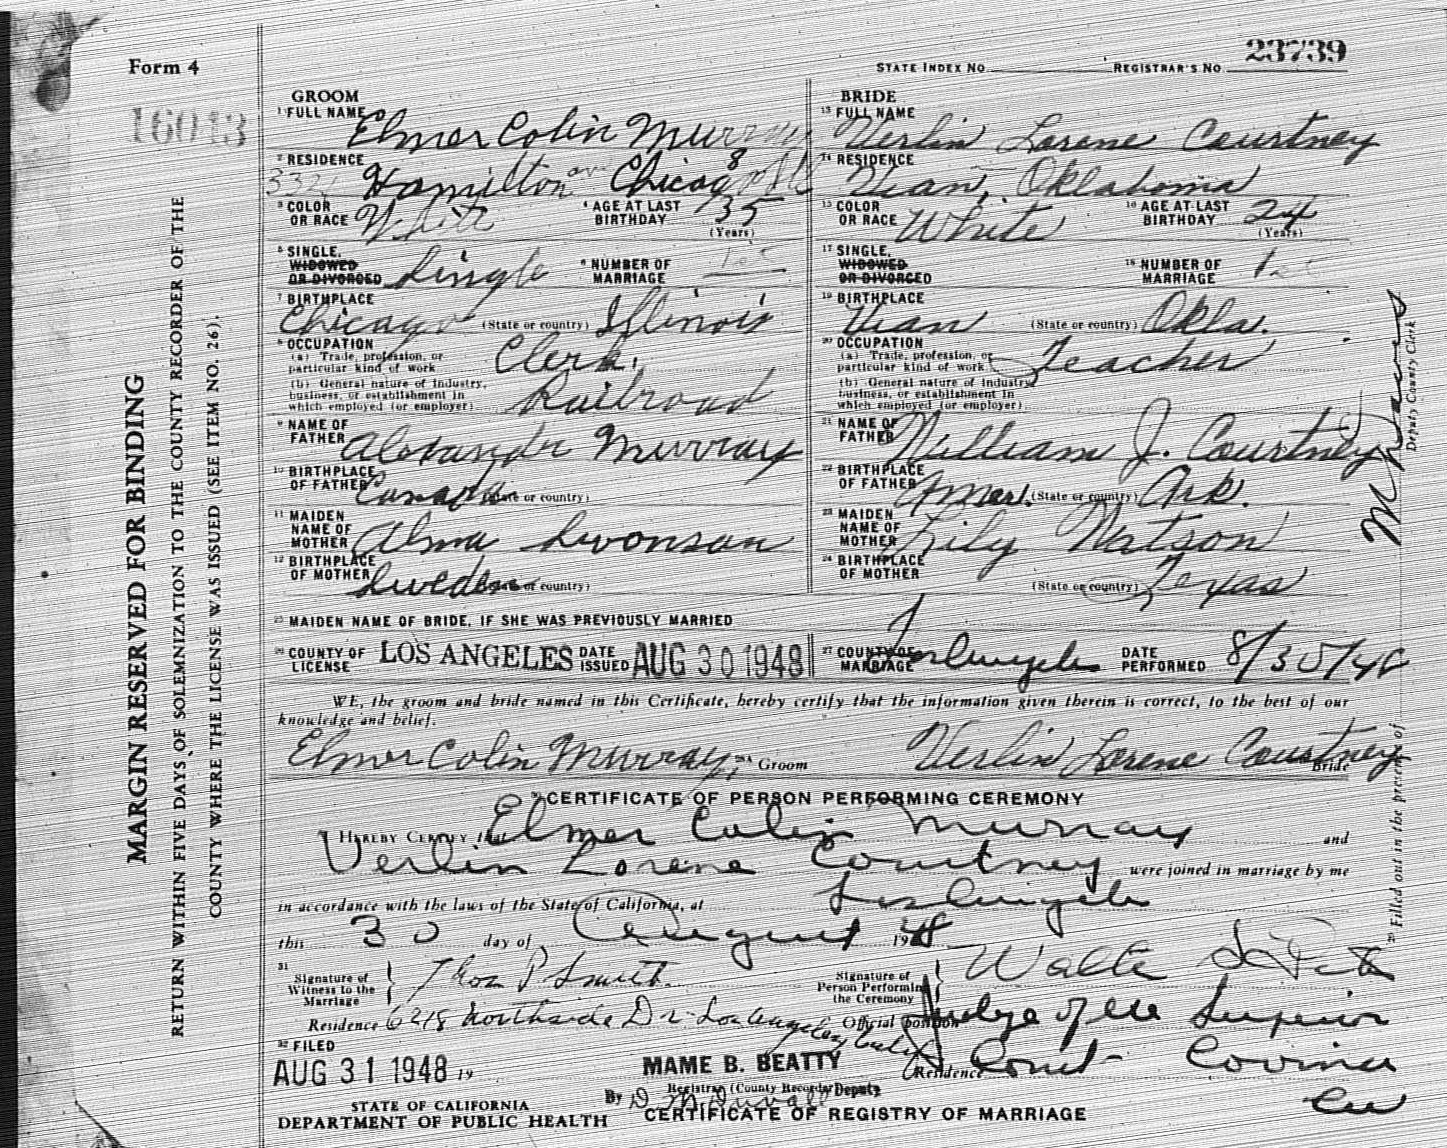 Form 4
STATE INDEX No. REGISTRAR'S No. 23739
16043
GROOM
1 FULL NAME Elmer Colin Murray
2 RESIDENCE Hamilton ave Chicago
3 COLOR OR RACE White 4 AGE AT LAST BIRTHDAY 35 (Years)
5 SINGLE, WIDOWED OR DIVORCED Single 6 NUMBER OF MARRIAGE 1st
7 BIRTHPLACE Chicago (State or country) Illinois
8 OCCUPATION
(a) Trade, profession, or particular kind of work Clerk
(b) General nature of industry, business, or establishment in which employed (or employer) Railroad
9 NAME OF FATHER Alexander Murray
10 BIRTHPLACE OF FATHER Canada (State or country)
11 MAIDEN NAME OF MOTHER Alma Swonson
12 BIRTHPLACE OF MOTHER Sweden (State or country)
BRIDE
13 FULL NAME Verlin Lorene Courtney
14 RESIDENCE Vian, Oklahoma
15 COLOR OR RACE White 16 AGE AT LAST BIRTHDAY 24 (Years)
17 SINGLE, WIDOWED OR DIVORCED 18 NUMBER OF MARRIAGE 1
19 BIRTHPLACE Vian (State or country) Okla.
20 OCCUPATION
(a) Trade, profession, or particular kind of work Teacher
(b) General nature of industry, business, or establishment in which employed (or employer)
21 NAME OF FATHER William J. Courtney
22 BIRTHPLACE OF FATHER (State or country) Ark.
23 MAIDEN NAME OF MOTHER Lily Watson
24 BIRTHPLACE OF MOTHER (State or country) Texas
25 MAIDEN NAME OF BRIDE, IF SHE WAS PREVIOUSLY MARRIED
26 COUNTY OF LICENSE LOS ANGELES DATE ISSUED AUG 30 1948 27 COUNTY OF MARRIAGE Los Angeles DATE PERFORMED 8/30/48
WE, the groom and bride named in this Certificate, hereby certify that the information given therein is correct, to the best of our
knowledge and belief.
Elmer Colin Murray, Groom Verlin Lorene Courtney Bride
CERTIFICATE OF PERSON PERFORMING CEREMONY
I HEREBY CERTIFY that Elmer Colin Murray and
Verlin Lorene Courtney were joined in marriage by me
in accordance with the laws of the State of California, at Los Angeles
this 30 day of August 1948
31 Signature of Witness to the Marriage Thos P Smith
Residence 6218 Northside Dr Los Angeles Calif
Signature of Person Performing the Ceremony
Official position Judge of the Superior
Court
Residence Covina
32 FILED
AUG 31 1948 19
MAME B. BEATTY
Registrar (County Recorder) Deputy
By
STATE OF CALIFORNIA
DEPARTMENT OF PUBLIC HEALTH
CERTIFICATE OF REGISTRY OF MARRIAGE
MARGIN RESERVED FOR BINDING
RETURN WITHIN FIVE DAYS OF SOLEMNIZATION TO THE COUNTY RECORDER OF THE
COUNTY WHERE THE LICENSE WAS ISSUED (SEE ITEM NO. 26).
Filled out in the presence of
Deputy County Clerk